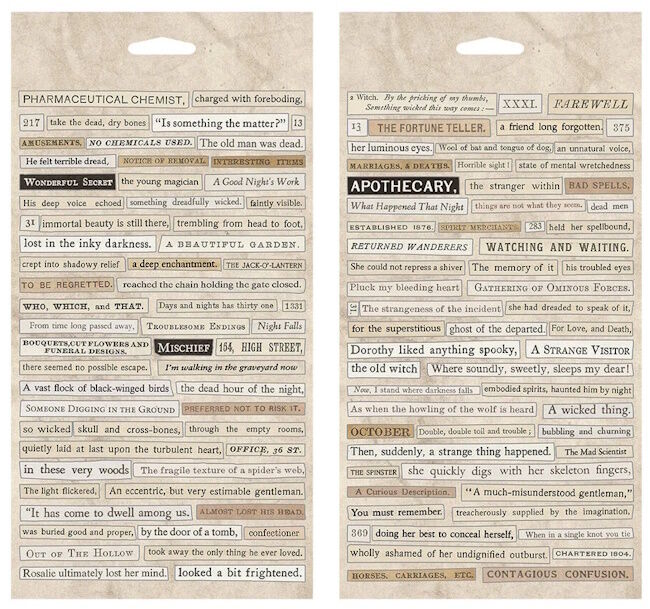 PHARMACEUTICAL CHEMIST, charged with foreboding,
217 take the dead, dry bones "Is something the matter?" 13
AMUSEMENTS. NO CHEMICALS USED. The old man was dead.
He felt terrible dread, NOTICE OF REMOVAL INTERESTING ITEMS
WONDERFUL SECRET the young magician A Good Night's Work
His deep voice echoed something dreadfully wicked. faintly visible.
31 immortal beauty is still there, trembling from head to foot,
lost in the inky darkness. A BEAUTIFUL GARDEN.
crept into shadowy relief a deep enchantment. THE JACK-O'-LANTERN
TO BE REGRETTED. reached the chain holding the gate closed.
WHO, WHICH, and THAT. Days and nights has thirty one 1331
From time long passed away, TROUBLESOME ENDINGS Night Falls
BOUQUETS, CUT FLOWERS AND FUNERAL DESIGNS. MISCHIEF 154, HIGH STREET,
there seemed no possible escape. I'm walking in the graveyard now
A vast flock of black-winged birds the dead hour of the night,
SOMEONE DIGGING IN THE GROUND PREFERRED NOT TO RISK IT.
so wicked skull and cross-bones, through the empty rooms,
quietly laid at last upon the turbulent heart, OFFICE, 36 ST.
in these very woods The fragile texture of a spider's web,
The light flickered, An eccentric, but very estimable gentleman.
"It has come to dwell among us. ALMOST LOST HIS HEAD.
was buried good and proper, by the door of a tomb, confectioner
OUT OF THE HOLLOW took away the only thing he ever loved.
Rosalie ultimately lost her mind. looked a bit frightened.
2 Witch. By the pricking of my thumbs,
Something wicked this way comes :— XXXI. FAREWELL
13 THE FORTUNE TELLER. a friend long forgotten. 375
her luminous eyes. Wool of bat and tongue of dog, an unnatural voice,
MARRIAGES, & DEATHS. Horrible sight! state of mental wretchedness
APOTHECARY, the stranger within BAD SPELLS,
What Happened That Night things are not what they seem. dead men
ESTABLISHED 1876. SPIRIT MERCHANTS. 283 held her spellbound,
RETURNED WANDERERS WATCHING AND WAITING.
She could not repress a shiver The memory of it his troubled eyes
Pluck my bleeding heart GATHERING OF OMINOUS FORCES.
31 The strangeness of the incident she had dreaded to speak of it,
for the superstitious ghost of the departed. For Love, and Death,
Dorothy liked anything spooky, A STRANGE VISITOR
the old witch Where soundly, sweetly, sleeps my dear!
Now, I stand where darkness falls embodied spirits, haunted him by night
As when the howling of the wolf is heard A wicked thing.
OCTOBER Double, double toil and trouble ; bubbling and churning
Then, suddenly, a strange thing happened. The Mad Scientist
THE SPINSTER she quickly digs with her skeleton fingers,
A Curious Description. "A much-misunderstood gentleman,"
You must remember. treacherously supplied by the imagination,
369 doing her best to conceal herself, When in a single knot you tie
wholly ashamed of her undignified outburst. CHARTERED 1804.
HORSES, CARRIAGES, ETC. CONTAGIOUS CONFUSION.